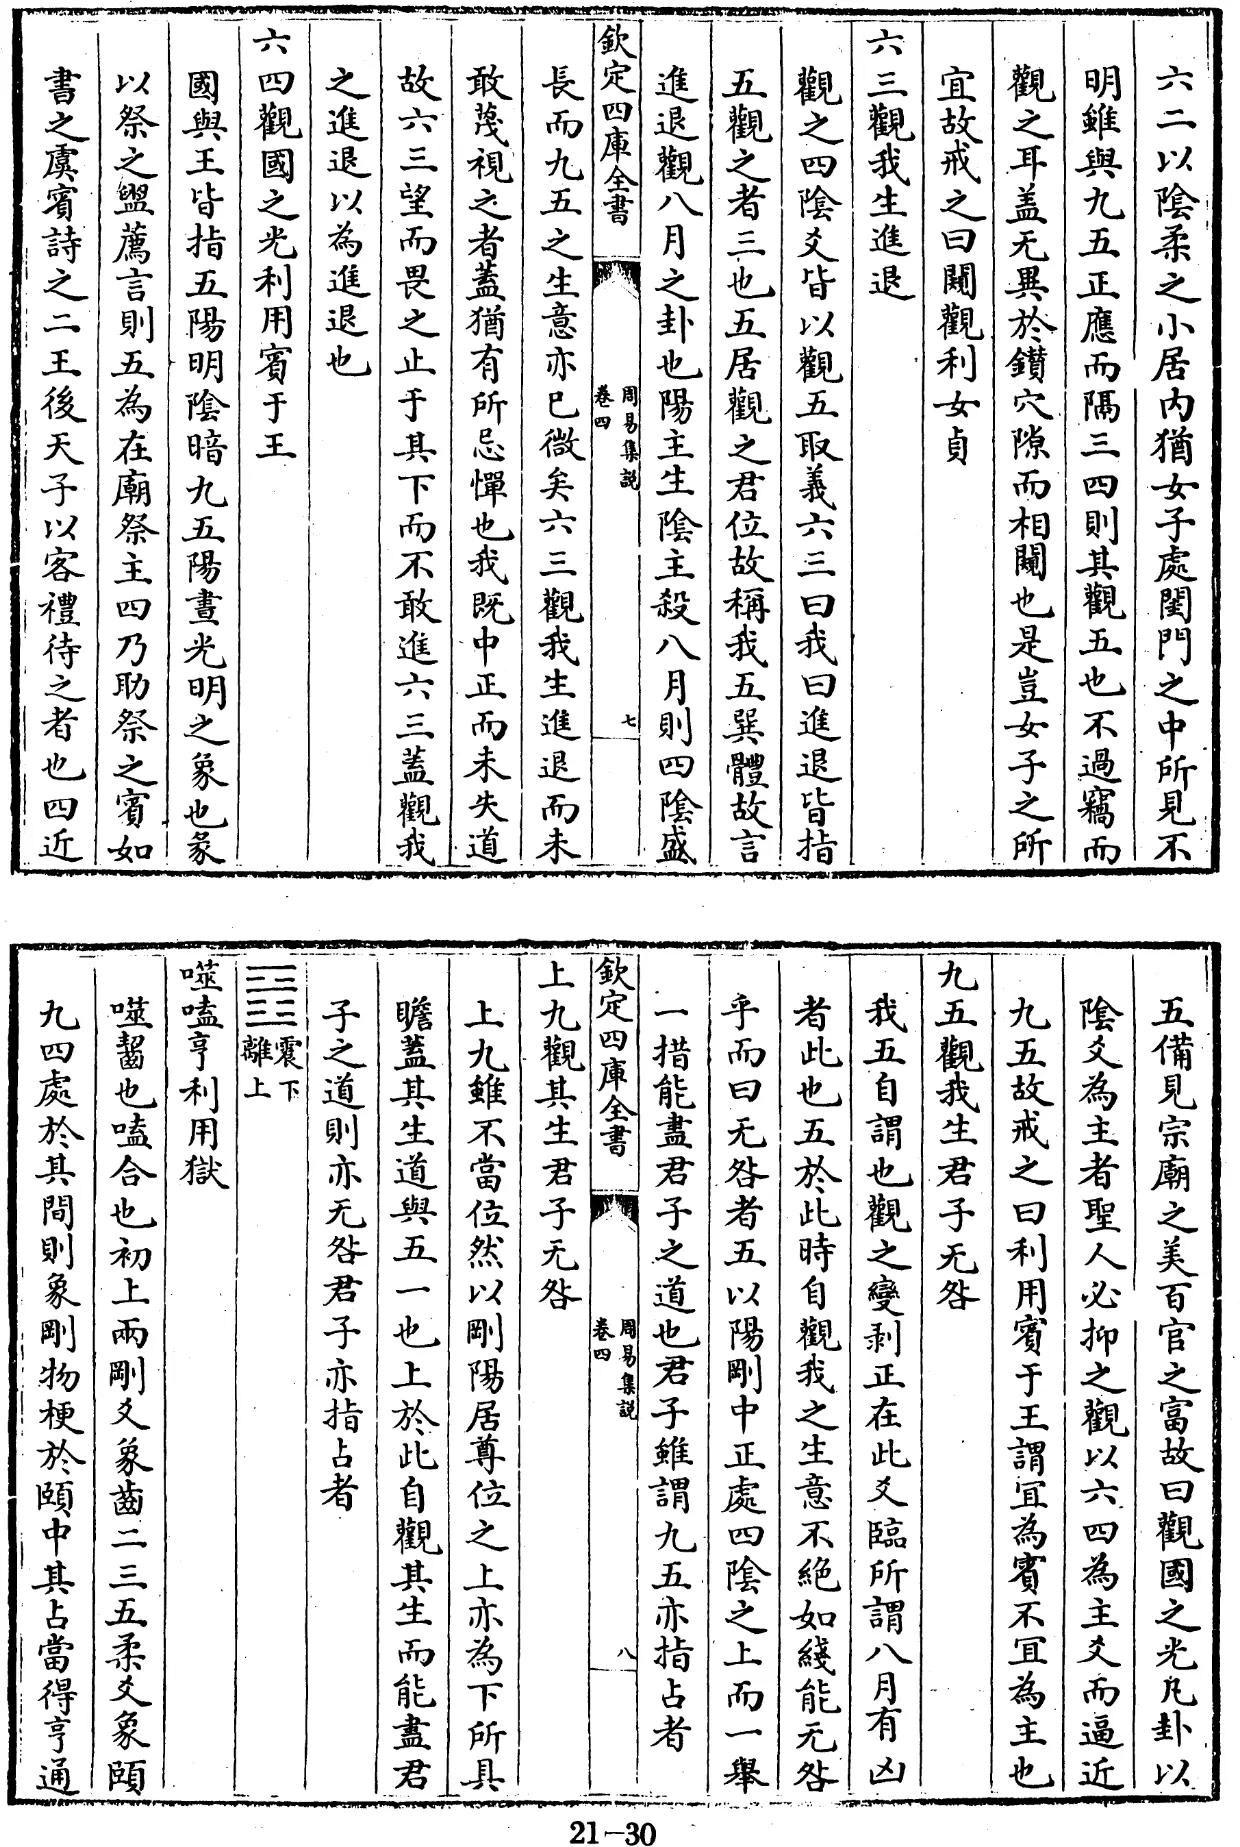 六二以陰柔之小居内猶女子處閨門之中所見不
明雖與九五正應而隔三四則其觀五也不過竊而
觀之耳盖无異於鑚穴隙而相闚也是豈女子之所
宜故戒之曰闚觀利女貞
六三觀我生進退
觀之四陰爻皆以觀五取義六三曰我曰進退皆指
五觀之者三也五居觀之君位故稱我五巽體故言
進退觀八月之卦也陽主生陰主殺八月則四陰盛
欽定四庫全書
周易集説
卷四
七
長而九五之生意亦已微矣六三觀我生進退而未
敢蔑視之者蓋猶有所忌憚也我既中正而未失道
故六三望而畏之止于其下而不敢進六三蓋觀我
之進退以為進退也
六四觀國之光利用賓于王
國與王皆指五陽明陰暗九五陽晝光明之象也彖
以祭之盥薦言則五為在廟祭主四乃助祭之賓如
書之虞賓詩之二王後天子以客禮待之者也四近
五備見宗廟之美百官之富故曰觀國之光凡卦以
陰爻為主者聖人必抑之觀以六四為主爻而逼近
九五故戒之曰利用賓于王謂宜為賓不宜為主也
九五觀我生君子无咎
我五自謂也觀之變剥正在此爻臨所謂八月有凶
者此也五於此時自觀我之生意不絶如綫能无咎
乎而曰无咎者五以陽剛中正處四陰之上而一舉
一措能盡君子之道也君子雖謂九五亦指占者
欽定四庫全書
周易集説
卷四
八
上九觀其生君子无咎
上九雖不當位然以剛陽居尊位之上亦為下所具
瞻蓋其生道與五一也上於此自觀其生而能盡君
子之道則亦无咎君子亦指占者
震下
離上
噬嗑亨利用獄
噬齧也嗑合也初上兩剛爻象齒二三五柔爻象頤
九四處於其間則象剛物梗於頤中其占當得亨通
21-30